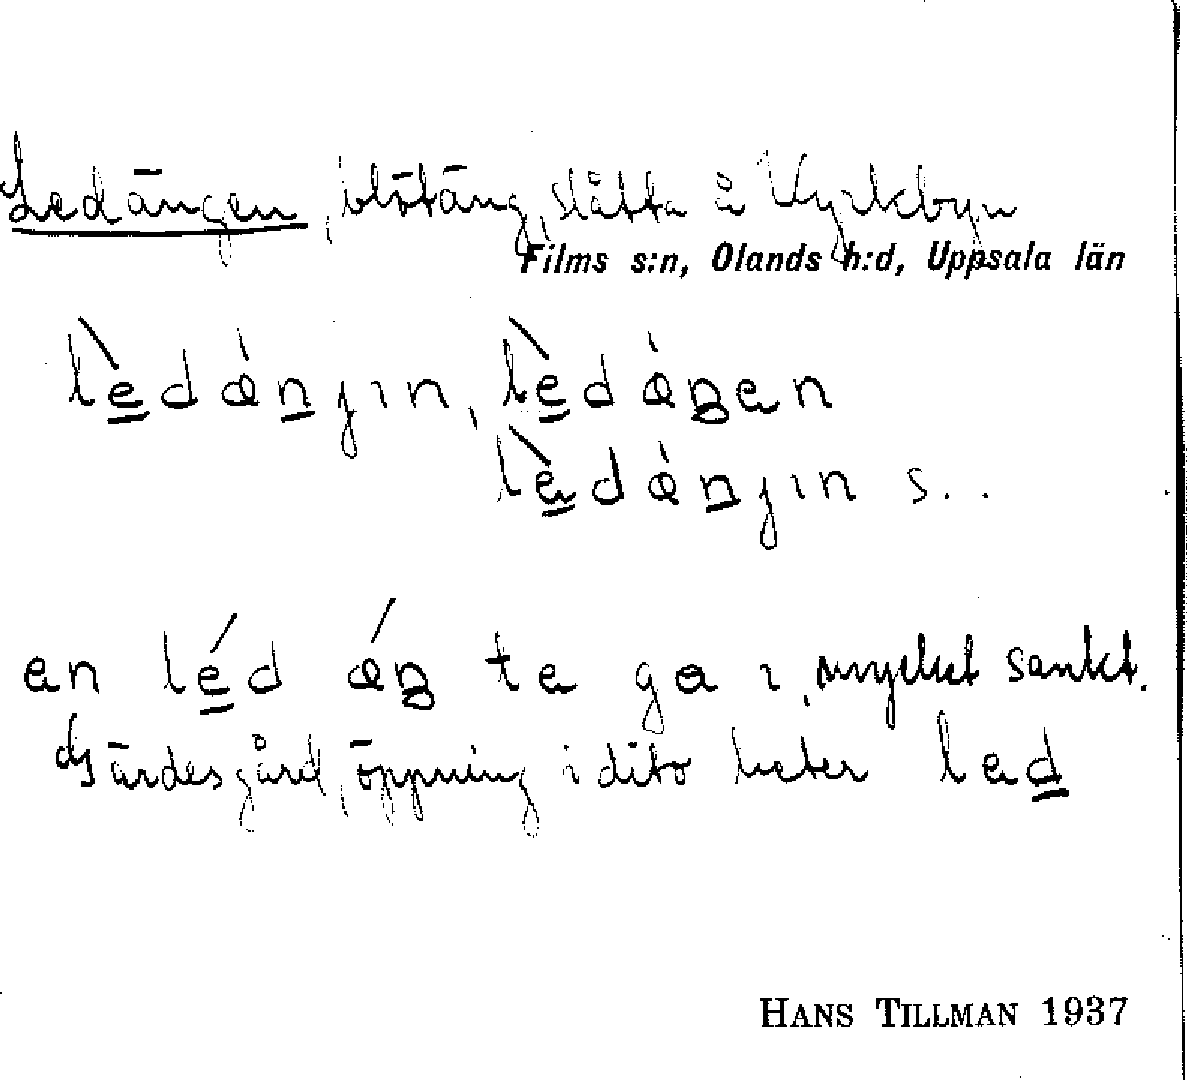 Ledängen, blötäng, slåtta å Kyrkbyn
Films s:n, Olands h:d, Uppsala län
lèdǽnjin, lèdǽŋen
lèdǽnjin s..
en léd ǽŋ te ga i, mycket sankt.
Gärdesgård, öppning i dito heter led
HANS TILLMAN 1937